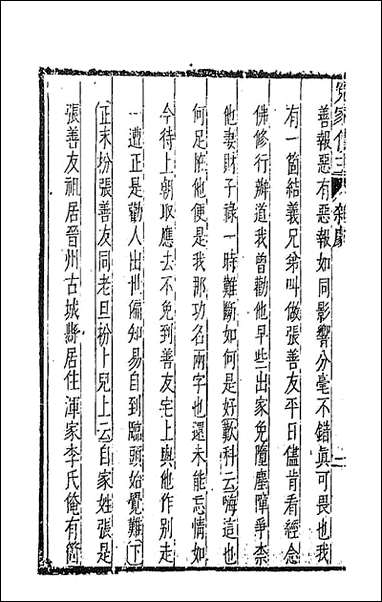 冤家債主 雜劇
善報惡有惡報如同影響分毫不錯真可畏也我
有一箇結義兄弟叫做張善友平日儘肯看經念
佛修行辦道我曾勸他早些出家免墮塵障爭柰
他妻財子祿一時難斷如何是好歎科云嗨這也
何足怪他便是我那功名兩字也還未能忘情如
今待上朝取應去不免到善友宅上與他作別走
一遭正是勸人出世偏知易自到臨頭始覺難下
正末扮張善友同老旦扮卜兒上云自家姓張是
張善友祖居晉州古城縣居住渾家李氏俺有箇